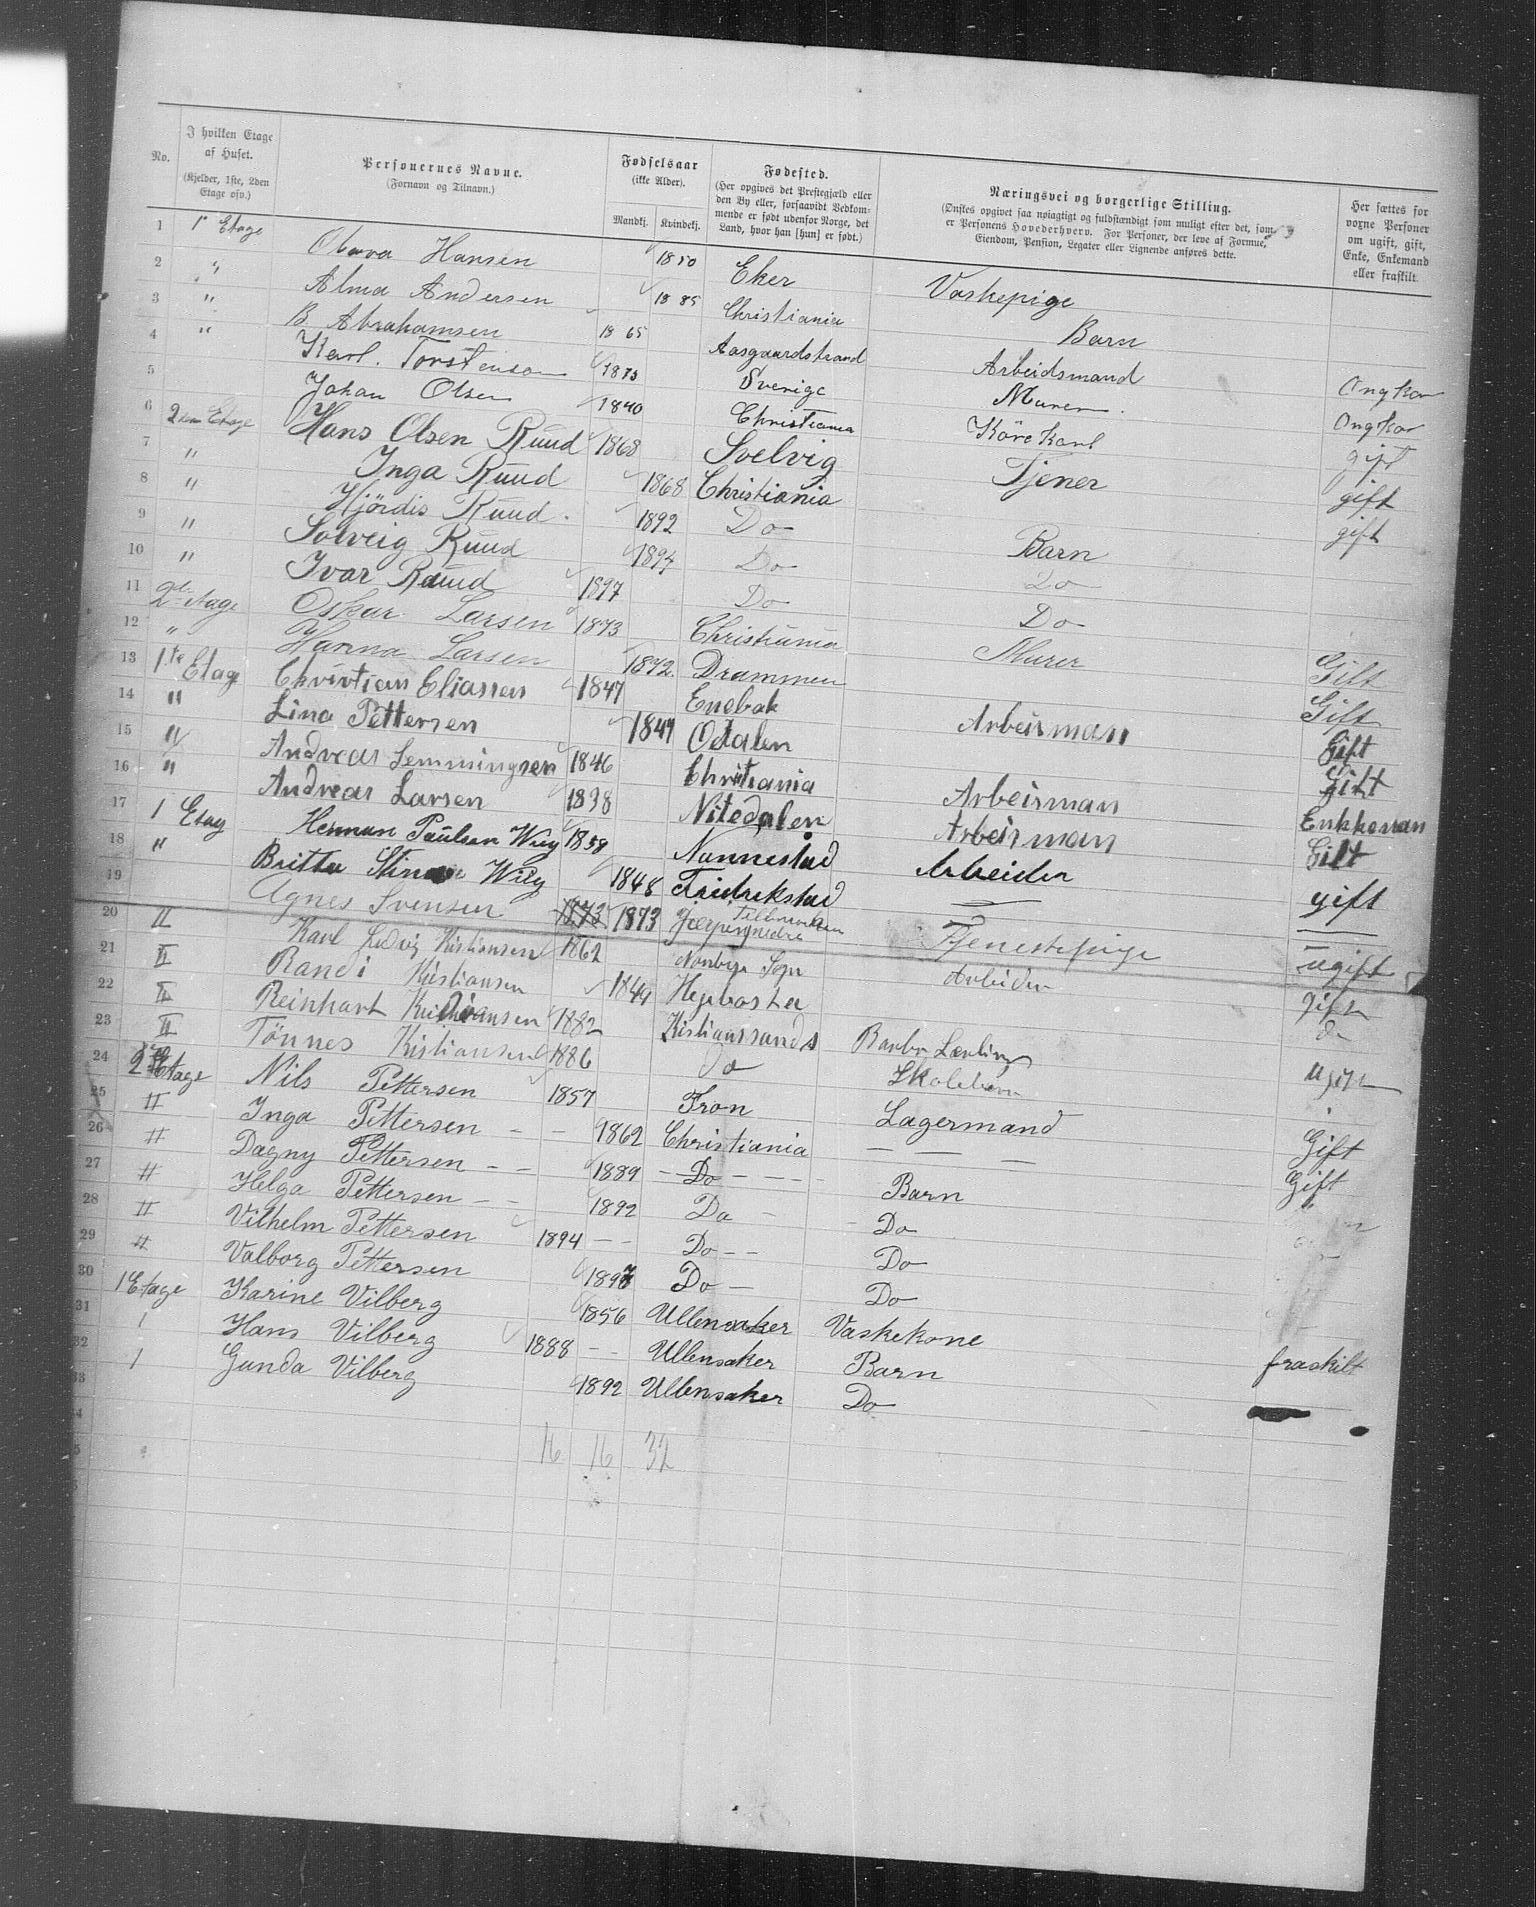 No. I hvilken Etage af Huset. (Kjelder, 1ste, 2den Etage osv.) Personernes Navne. (Fornavn og Tilnavn.) Fødselsaar (ikke Alder). Mandkj. Kvindekj. Fødested. (Her opgives det Prestegjæld eller den By eller, forsaavidt Vedkommende er født udenfor Norge, det Land, hvor han [hun] er født.) Næringsvei og borgerlige Stilling. (Ønskes opgivet saa nøiagtigt og fuldstændigt som muligt efter det, som er Personens Hovederhverv. For Personer, der leve af Formue, Eiendom, Pension, Legater eller Lignende anføres dette. Her sættes for voxne Personer om ugift, gift, Enke, Enkemand eller fraskilt.
1 1' Etage Olava Hansen 1850 Eker Vaskepige
2 " Alma Andersen 1885 Christiania Barn
3 " B Abrahamsen 1865 Aasgaardstrand Arbeidsmand Ongkar
4 " Karl. Torstenson 1873 Sverige Murer. Ongkar
5 Johan Olsen 1840 Christiania Köre Karl gift
6 2den Etage Hans Olsen Ruud 1868 Svelvig Tjener gift
7 " Inga Ruud 1868 Christiania gift
8 " Hjördis Ruud. 1892 Do Barn
9 " Solveig Ruud 1894 Do Do
10 " Ivar Ruud 1897 Do Do
11 2de Etage Oskar Larsen 1873 Christiania Murer Gift
12 " Hanna Larsen 1872. Drammen Gift
13 1te Etage Christian Eliassen 1847 Enebak Arbeisman Gift
14 " Lina Pettersen 1849 Odalen Gift
15 " Andreas Lemmingsen 1846 Christiania Arbeisman Enkkeman
16 " Andreas Larsen 1838 Nitedalen Arbeisman Gift
17 1 Etag Herman Paulsen Wiig 1858 Nannestad Arbeider gift
18 " Britta Stina Wiig 1848 Fridrekstad —
19 Agnes Svensen 1873 1873 Tjenestepige ugift
20 II Karl Ludvig Kristiansen 1862 Arbeider gift
21 II Randi Kistiansen 1849 do
22 II Reinhart Kristiansen 1882 Kistianssands ugift
23 II Tönnes Kistiansen 1886 Do
24 2 Etage Nils Pettersen 1857 Fron Lagermand Gift
25 II Inga Pettersen - - 1862 Christiania — — — Gift
26 II Dagny Pettersen - - 1889 - Do - - - - Barn
27 II Helga Pettersen - - 1892 Do - - Do
28 II Vilhelm Pettersen 1894 - - Do - - Do
29 II Valborg Pettersen 1897 Do - Do
30 1 Etage Karine Vilberg 1856 Ullensaker Vaskekone fraskilt
31 1 Hans Vilberg 1888 - - Ullensaker Barn
32 1 Gunda Vilberg 1892 Ullensaker Do
33
34
16 16 32